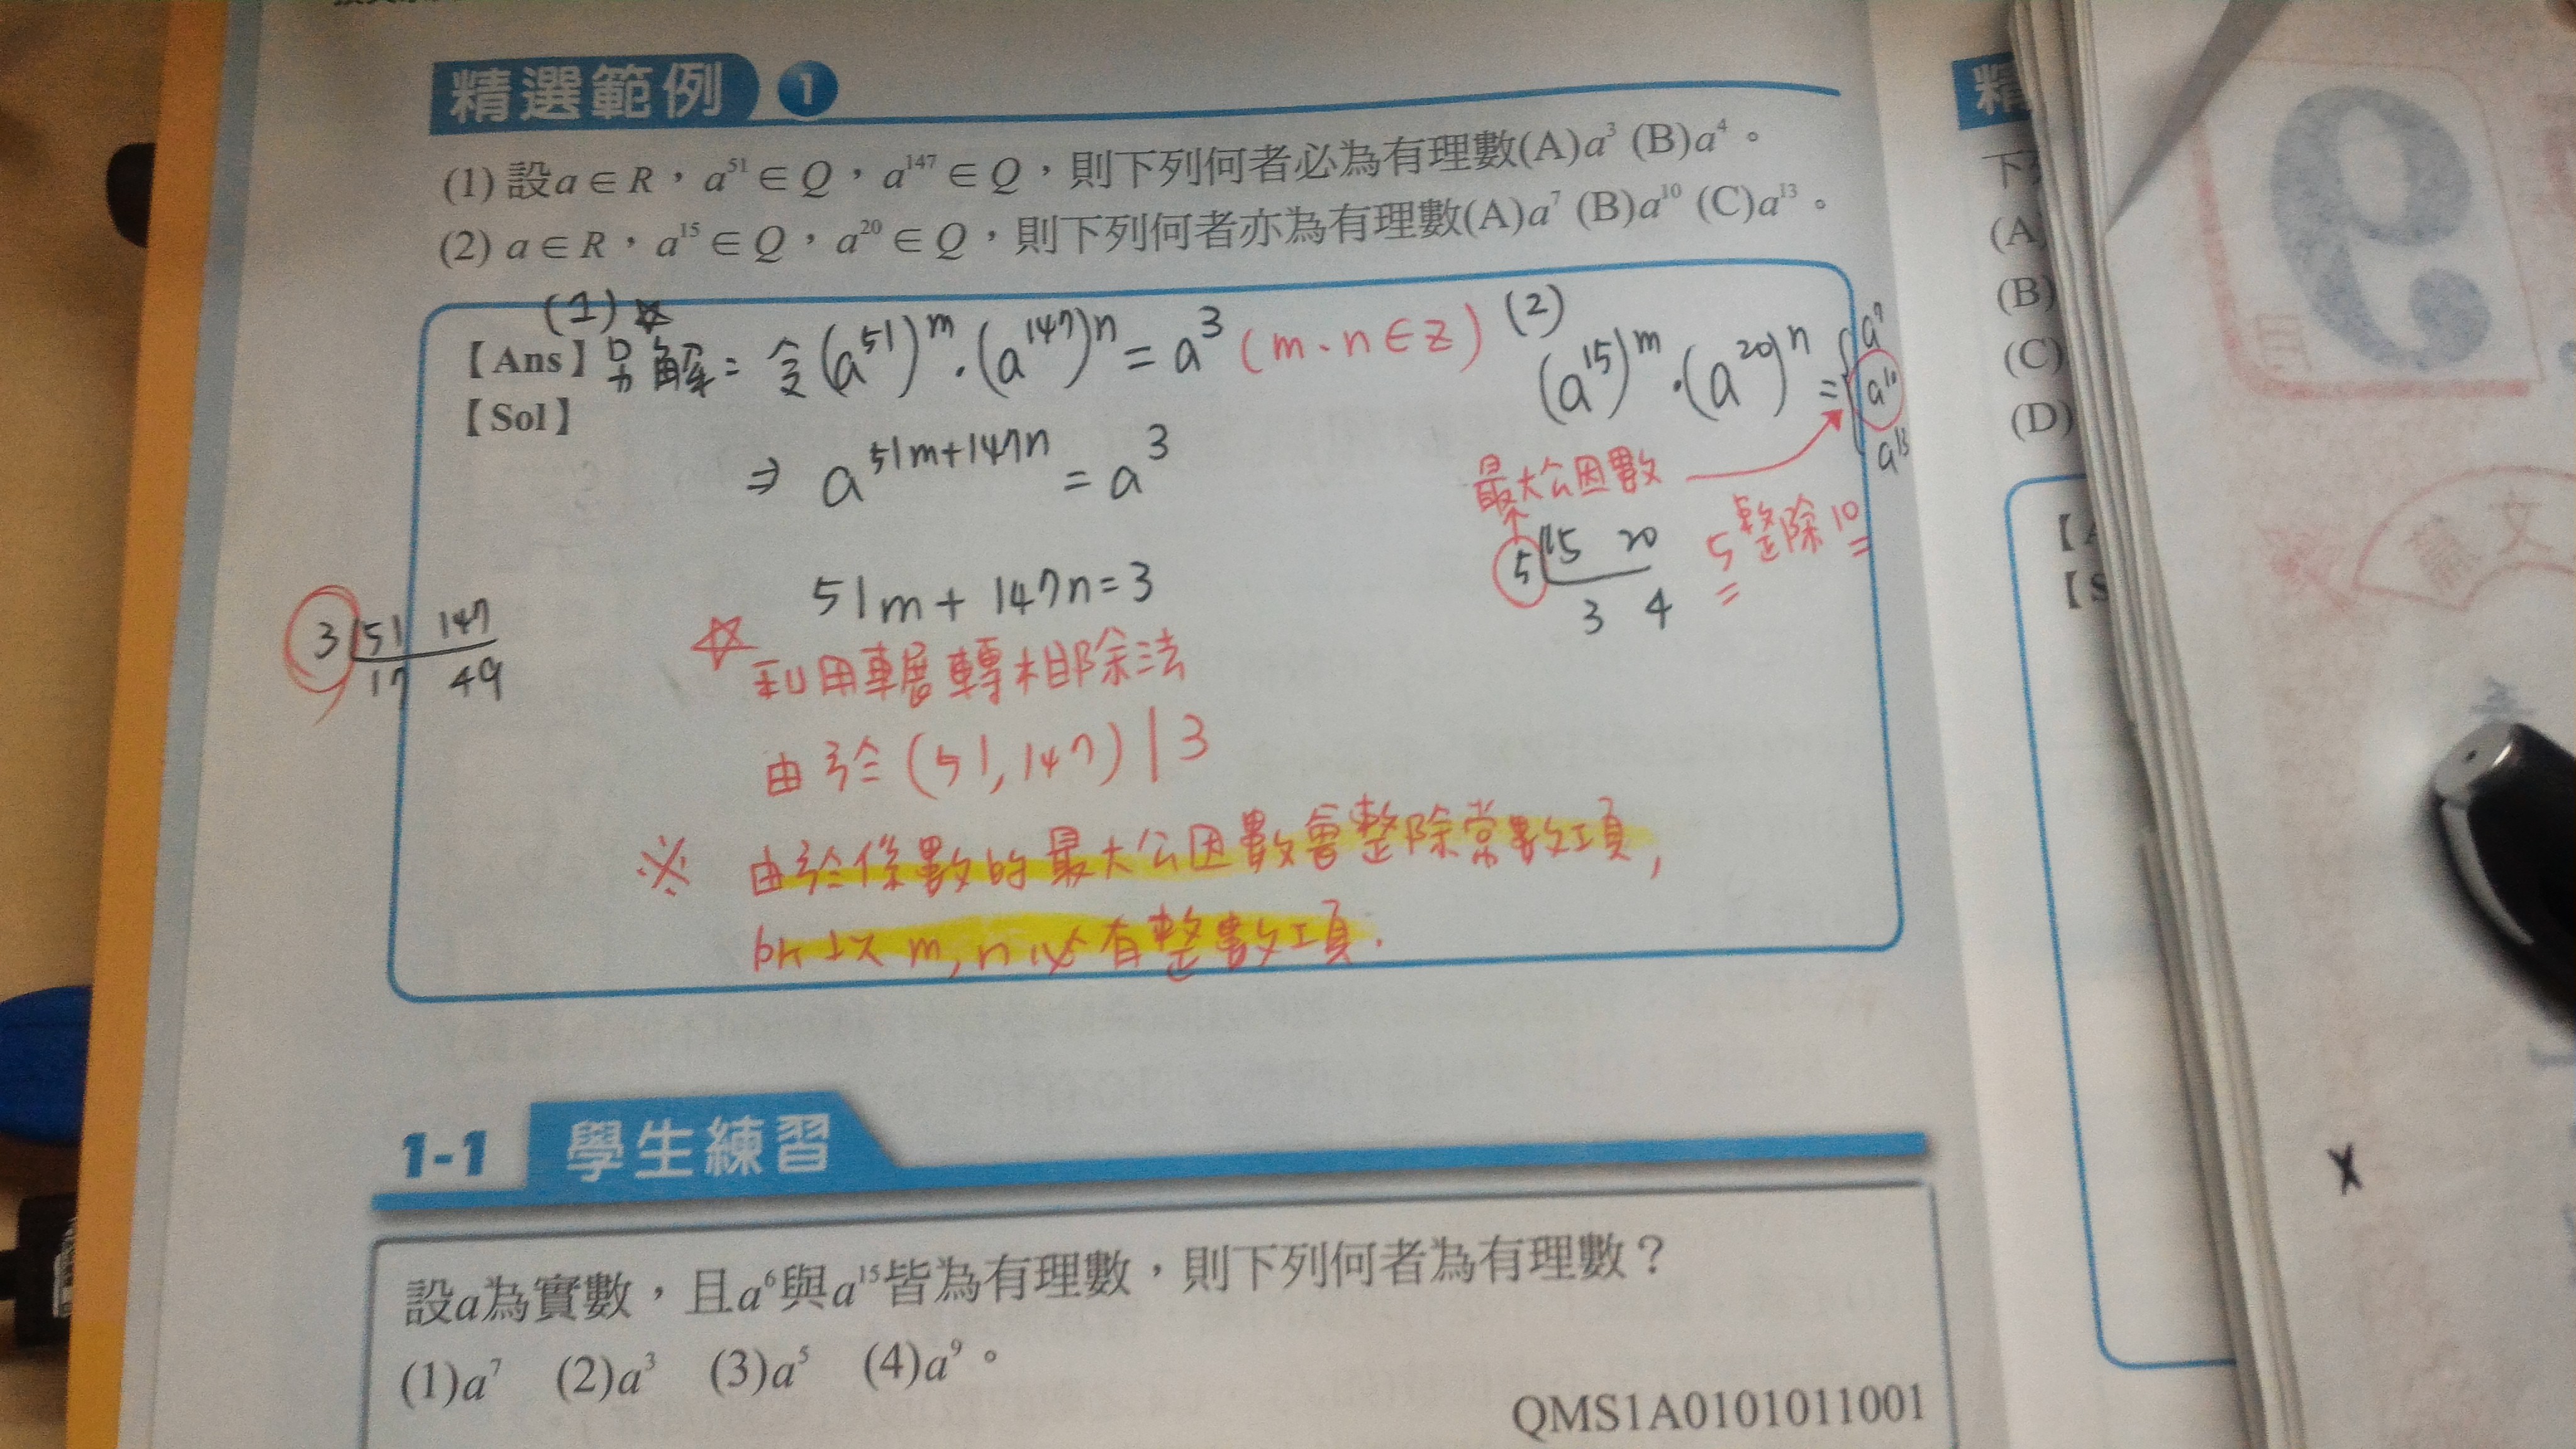 精選範例 1
(1) 設a∈R，a⁵¹∈Q，a¹⁴⁷∈Q，則下列何者必為有理數(A)a³ (B)a⁴。
(2) a∈R，a¹⁵∈Q，a²⁰∈Q，則下列何者亦為有理數(A)a⁷ (B)a¹⁰ (C)a¹³。
(1) ☆
【Ans】另解= 令(a⁵¹)ᵐ·(a¹⁴⁷)ⁿ = a³ (m、n∈Z)
【Sol】
⇒ a⁵¹ᵐ⁺¹⁴⁷ⁿ = a³
51m + 147n = 3
3 51 147
17 49
☆ 利用輾轉相除法
由於 (51, 147) | 3
※ 由於係數的最大公因數會整除常數項,
所以 m, n 必有整數項.
(2)
(a¹⁵)ᵐ·(a²⁰)ⁿ = { a⁷
a¹⁰
a¹³
最大公因數
5 15 20
3 4
5 整除 10
1-1 學生練習
設a為實數，且a⁶與a¹⁵皆為有理數，則下列何者為有理數？
(1)a⁷ (2)a³ (3)a⁵ (4)a⁹。
QMS1A0101011001
精
下
(A
(B)
(C)
(D)
【
【S
文
x